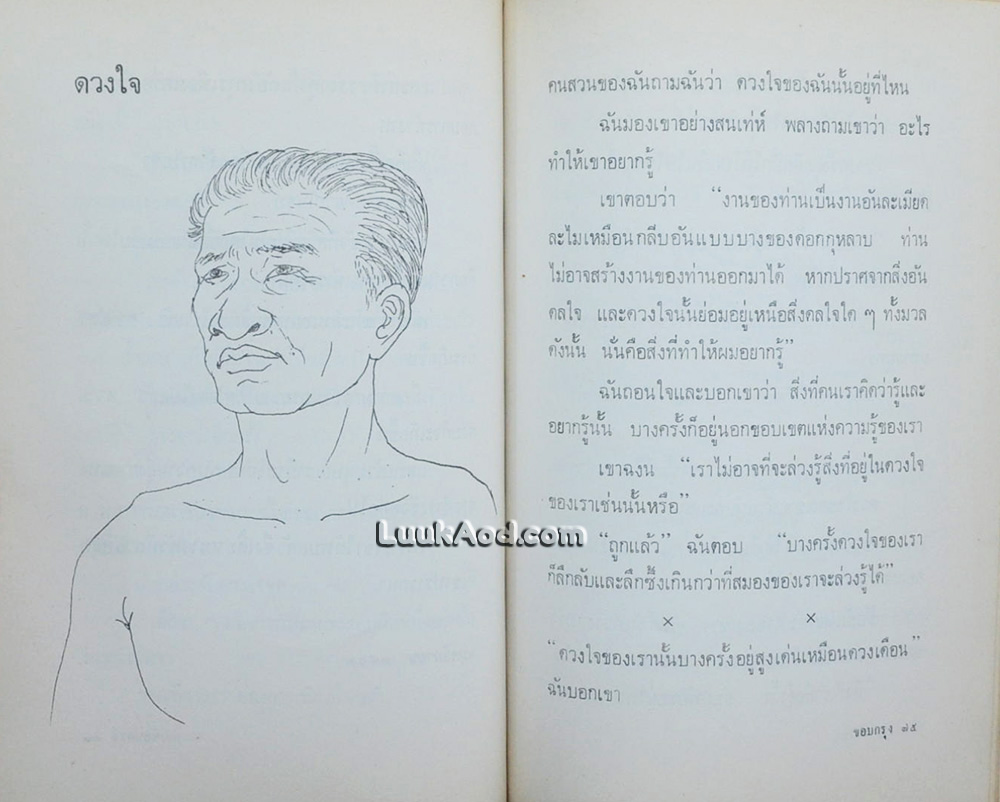 ดวงใจ
LuukAod.com
คนสวนของฉันถามฉันว่า ดวงใจของฉันนั้นอยู่ที่ไหน
ฉันมองเขาอย่างสนเท่ห์ พลางถามเขาว่า อะไร
ทำให้เขาอยากรู้
เขาตอบว่า “งานของท่านเป็นงานอันละเมียด
ละไมเหมือนกลีบอันแบบบางของดอกกุหลาบ ท่าน
ไม่อาจสร้างงานของท่านออกมาได้ หากปราศจากสิ่งอัน
ดลใจ และดวงใจนั้นย่อมอยู่เหนือสิ่งดลใจใด ๆ ทั้งมวล
ดังนั้น นั่นคือสิ่งที่ทำให้ผมอยากรู้”
ฉันถอนใจและบอกเขาว่า สิ่งที่คนเราคิดว่ารู้และ
อยากรู้นั้น บางครั้งก็อยู่นอกขอบเขตแห่งความรู้ของเรา
เขาฉงน “เราไม่อาจที่จะล่วงรู้สิ่งที่อยู่ในดวงใจ
ของเราเช่นนั้นหรือ”
“ถูกแล้ว” ฉันตอบ “บางครั้งดวงใจของเรา
ก็ลึกลับและลึกซึ้งเกินกว่าที่สมองของเราจะล่วงรู้ได้”
× ×
“ดวงใจของเรานั้นบางครั้งอยู่สูงเด่นเหมือนดวงเดือน”
ฉันบอกเขา
ขอบกรุง ๗๕